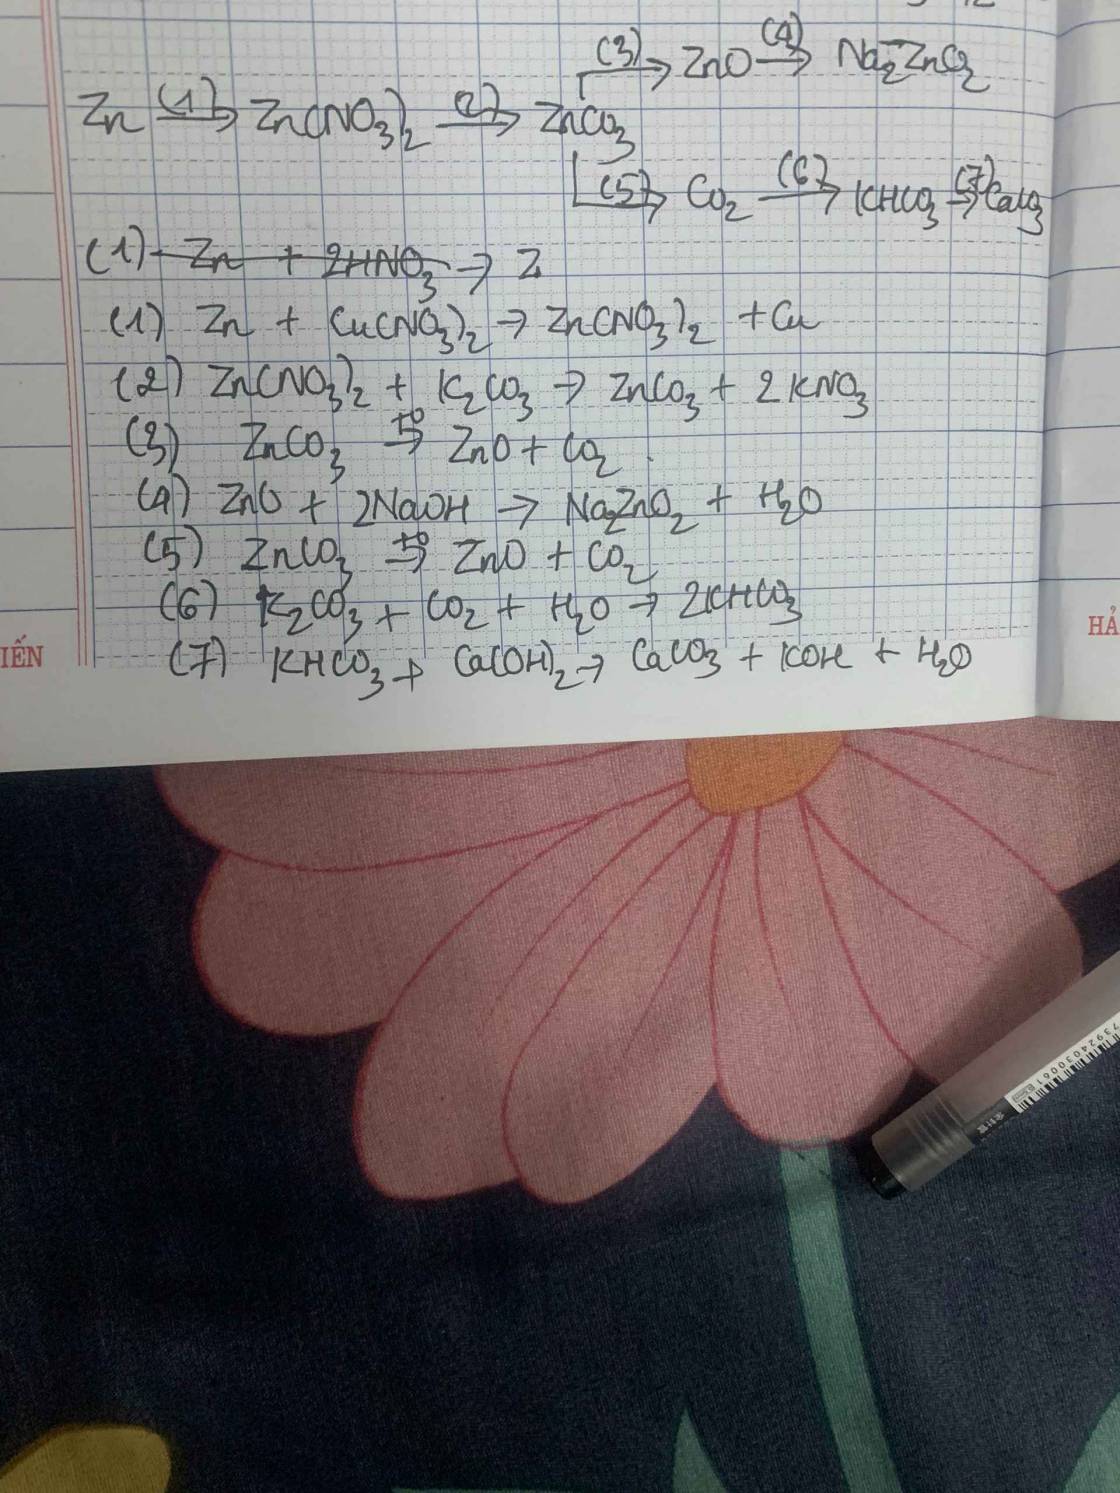 (3) → ZnO (4) → Na2ZnO2
Zn (1) → Zn(NO3)2 (2) → ZnCO3
(5) → CO2 (6) → KHCO3 (7) → CaCO3
(1) Zn + 2HNO3 → Z
(1) Zn + Cu(NO3)2 → Zn(NO3)2 + Cu
(2) Zn(NO3)2 + K2CO3 → ZnCO3 + 2KNO3
(3) ZnCO3 t° → ZnO + CO2
(4) ZnO + 2NaOH → Na2ZnO2 + H2O
(5) ZnCO3 t° → ZnO + CO2
(6) K2CO3 + CO2 + H2O → 2KHCO3
(7) KHCO3 + Ca(OH)2 → CaCO3 + KOH + H2O
IẾN
HẢ